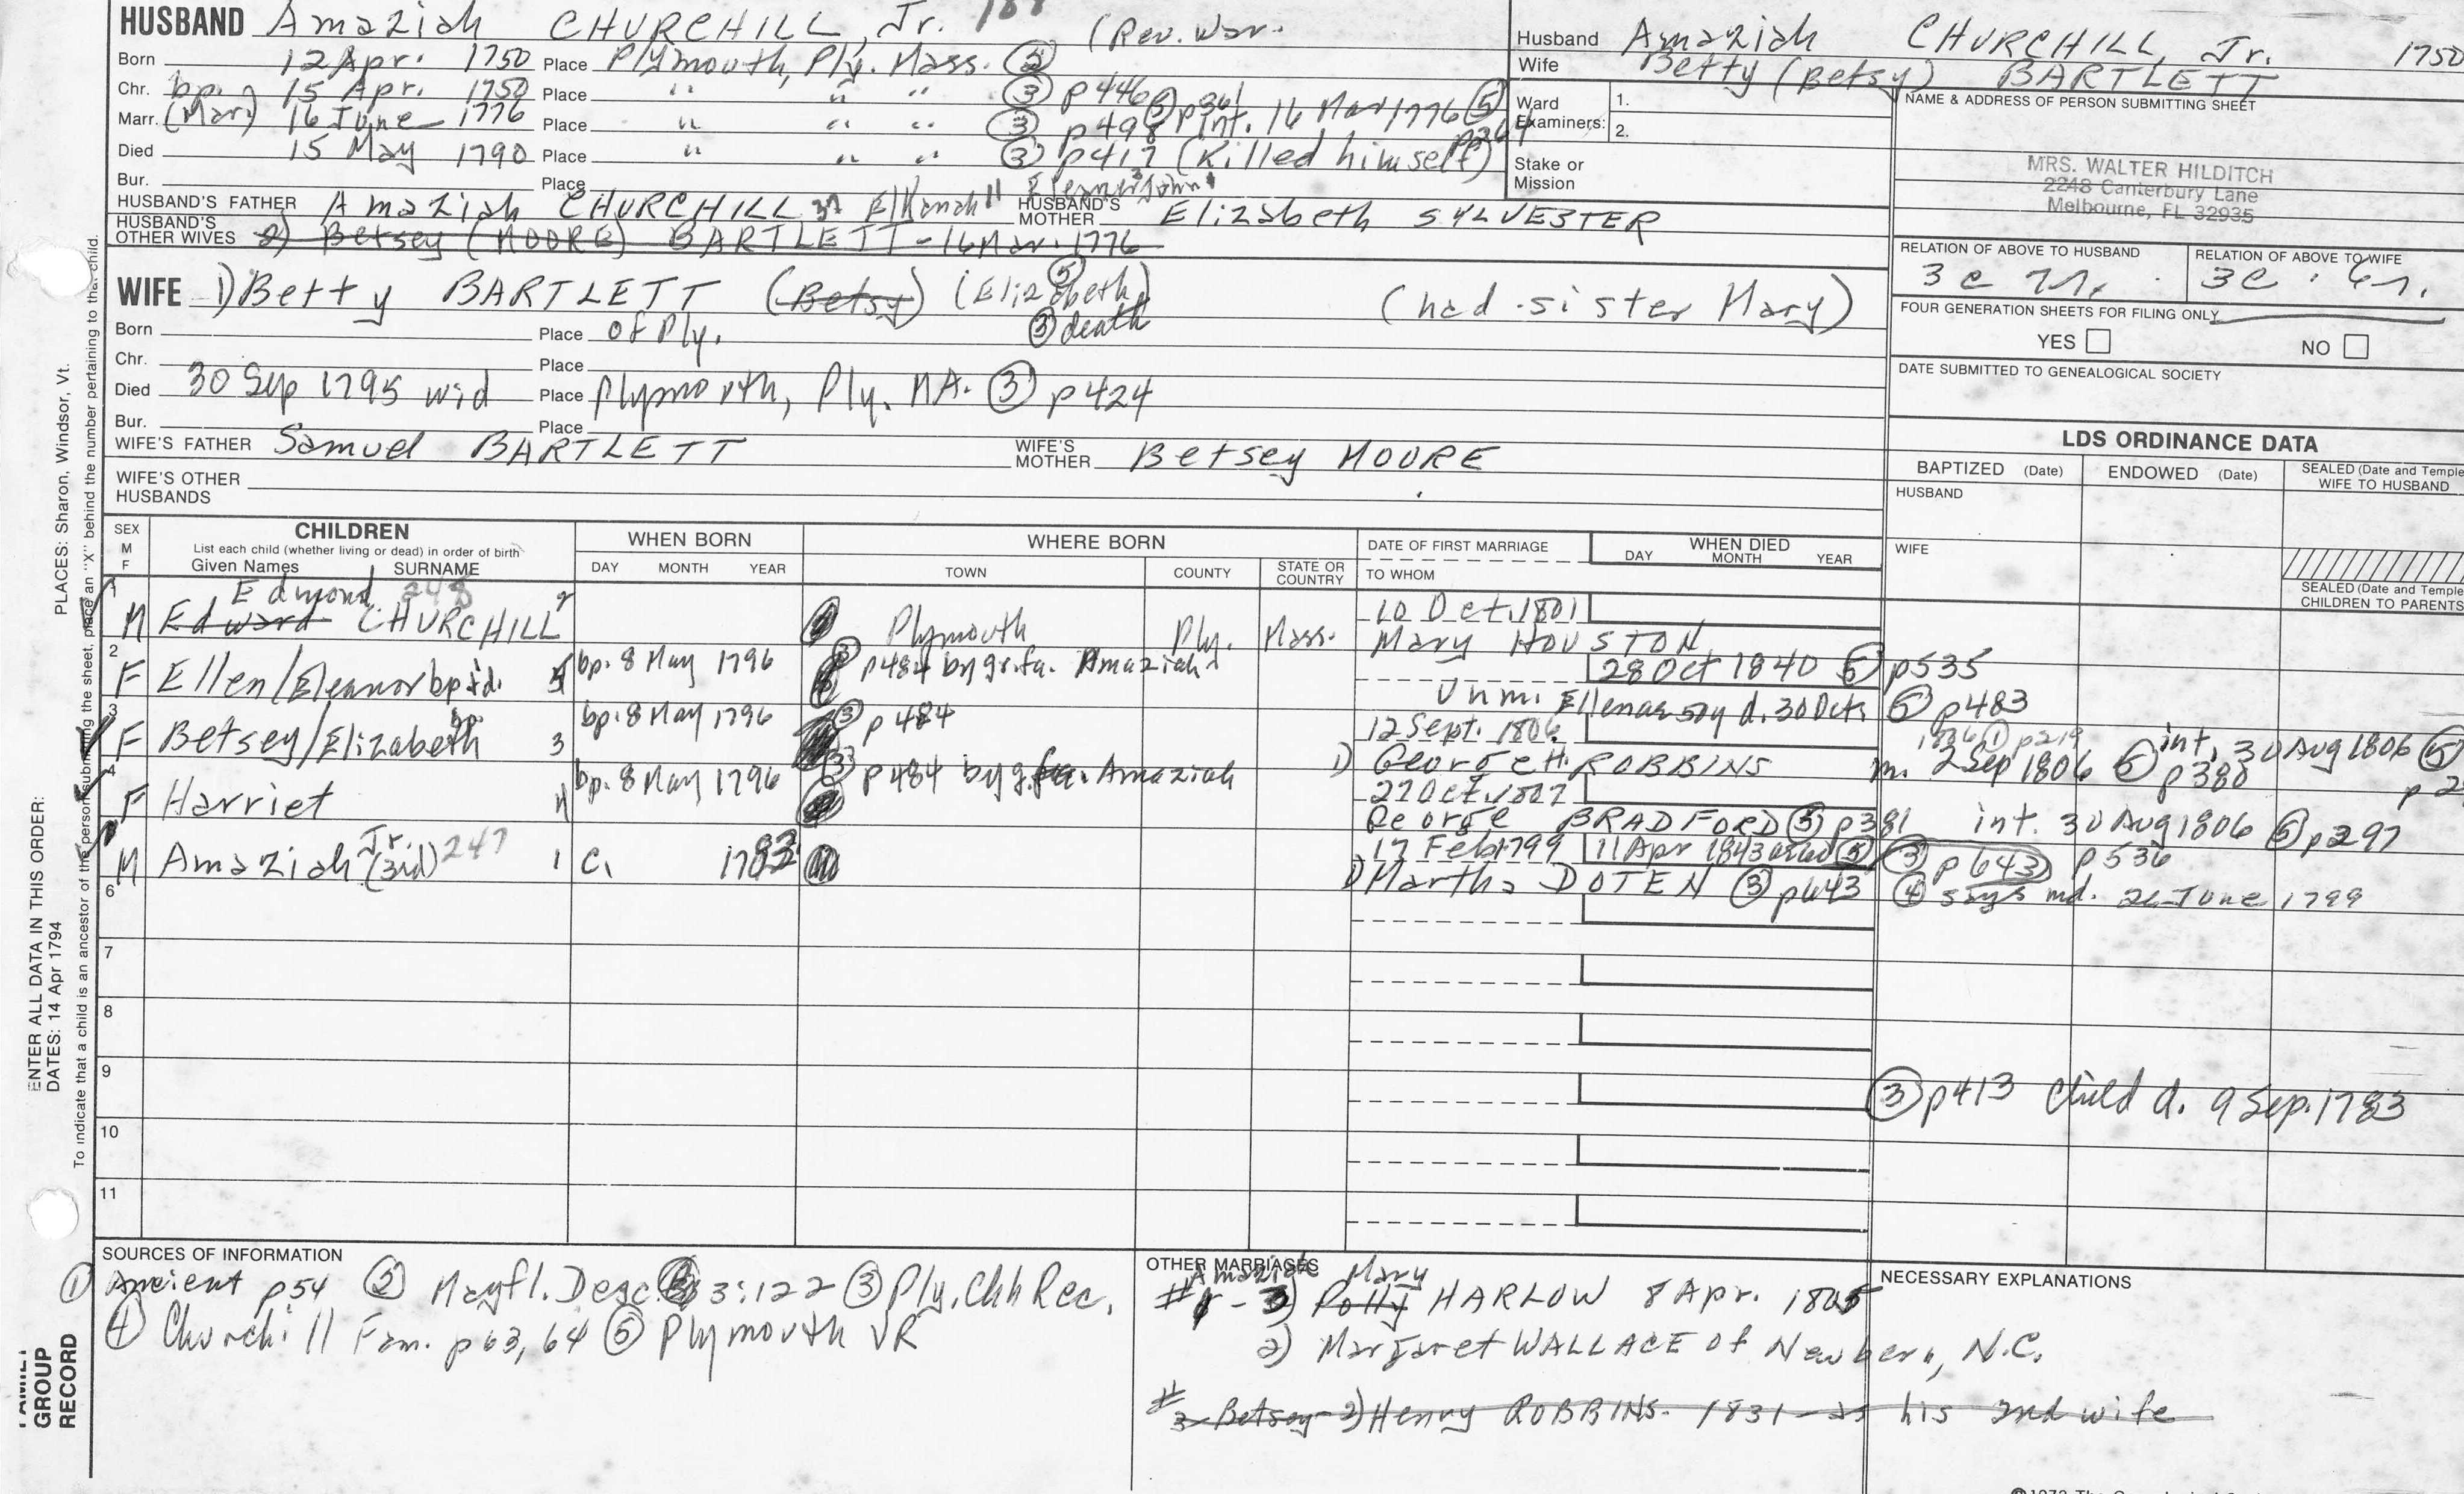 HUSBAND Amaziah CHURCHILL, Jr. 188 (Rev. War.
Born 12 Apr. 1750 Place Plymouth, Ply. Mass. ②
Chr. bp. 15 Apr. 1750 Place " " " ③ p446
Marr. (Mar) 16 June 1776 Place " " " ③ p498 ⑤ p361 int. 16 Mar 1776 ⑤ p264
Died 15 May 1790 Place " " " ③ p417 (Killed himself)
Bur. Place
HUSBAND'S FATHER Amaziah CHURCHILL 37 Elkanah Eleanor John HUSBAND'S MOTHER Elizabeth SYLVESTER
HUSBAND'S OTHER WIVES 2) Betsey (MOORE) BARTLETT - 16 Mar. 1776
Husband Amaziah CHURCHILL, Jr. 1750
Wife Betty (Betsy) BARTLETT
Ward Examiners: 1.
2.
Stake or Mission
NAME & ADDRESS OF PERSON SUBMITTING SHEET
MRS. WALTER HILDITCH
2248 Canterbury Lane
Melbourne, FL 32935
RELATION OF ABOVE TO HUSBAND RELATION OF ABOVE TO WIFE
FOUR GENERATION SHEETS FOR FILING ONLY
YES NO
DATE SUBMITTED TO GENEALOGICAL SOCIETY
WIFE 1) Betty BARTLETT (Betsy) (Elizabeth) ⑤ (had sister Mary)
③ death
Born Place of Ply.
Chr. Place
Died 30 Sep 1795 wid Place Plymouth, Ply. MA. ③ p424
Bur. Place
WIFE'S FATHER Samuel BARTLETT WIFE'S MOTHER Betsey MOORE
WIFE'S OTHER HUSBANDS
LDS ORDINANCE DATA
BAPTIZED (Date) ENDOWED (Date) SEALED (Date and Temple) WIFE TO HUSBAND
HUSBAND
WIFE
SEALED (Date and Temple) CHILDREN TO PARENTS
SEX M F
CHILDREN
List each child (whether living or dead) in order of birth
Given Names SURNAME
WHEN BORN
DAY MONTH YEAR
WHERE BORN
TOWN COUNTY STATE OR COUNTRY
DATE OF FIRST MARRIAGE
TO WHOM
WHEN DIED
DAY MONTH YEAR
1 M Edmond 248
Edward CHURCHILL 2 Plymouth Ply. Mass. 10 Oct. 1801
Mary HOUSTON
2 F Ellen/Eleanor bp'd. 5 bp. 8 May 1796 ③ p484 by gr. fa. Amaziah 28 Oct 1840 ⑤ p535
unm. Ellen ae 50y d. 30 Oct ⑤ p483
3 F Betsey/Elizabeth bp. 3 bp. 8 May 1796 ③ p484 12 Sept. 1806 1806 ① p219
1) George H. ROBBINS m. 2 Sep 1806 ⑤ p380 int. 30 Aug 1806 ⑤ p2
4 F Harriet 4 bp. 8 May 1796 ③ p484 by g. fa. Amaziah 27 Oct. 1807
George BRADFORD ⑤ p381 int. 30 Aug 1806 ⑤ p297
M Amaziah Jr. (3rd) 247 1 c. 1782 17 Feb 1799 11 Apr 1843 ⑤ ③ p643 p536
1) Martha DOTEN ③ p643 ④ says md. 26 June 1799
6
7
8
9
③ p413 Child d. 9 Sep. 1783
10
11
SOURCES OF INFORMATION
① Ancient p54 ② Mayfl. Desc. 3:122 ③ Ply. Chh Rec.
④ Churchill Fam. p63, 64 ⑤ Plymouth VR
OTHER MARRIAGES
Amaziah Mary
#1 - 3) Polly HARLOW 8 Apr. 1805
2) Margaret WALLACE of Newbern, N.C.
# 3 Betsey 2) Henry ROBBINS - 1831 - as his 2nd wife
NECESSARY EXPLANATIONS
PLACES: Sharon, Windsor, Vt.
ENTER ALL DATA IN THIS ORDER:
DATES: 14 Apr 1794
To indicate that a child is an ancestor of the person submitting the sheet, place an "X" behind the number pertaining to that child.
FAMILY GROUP RECORD